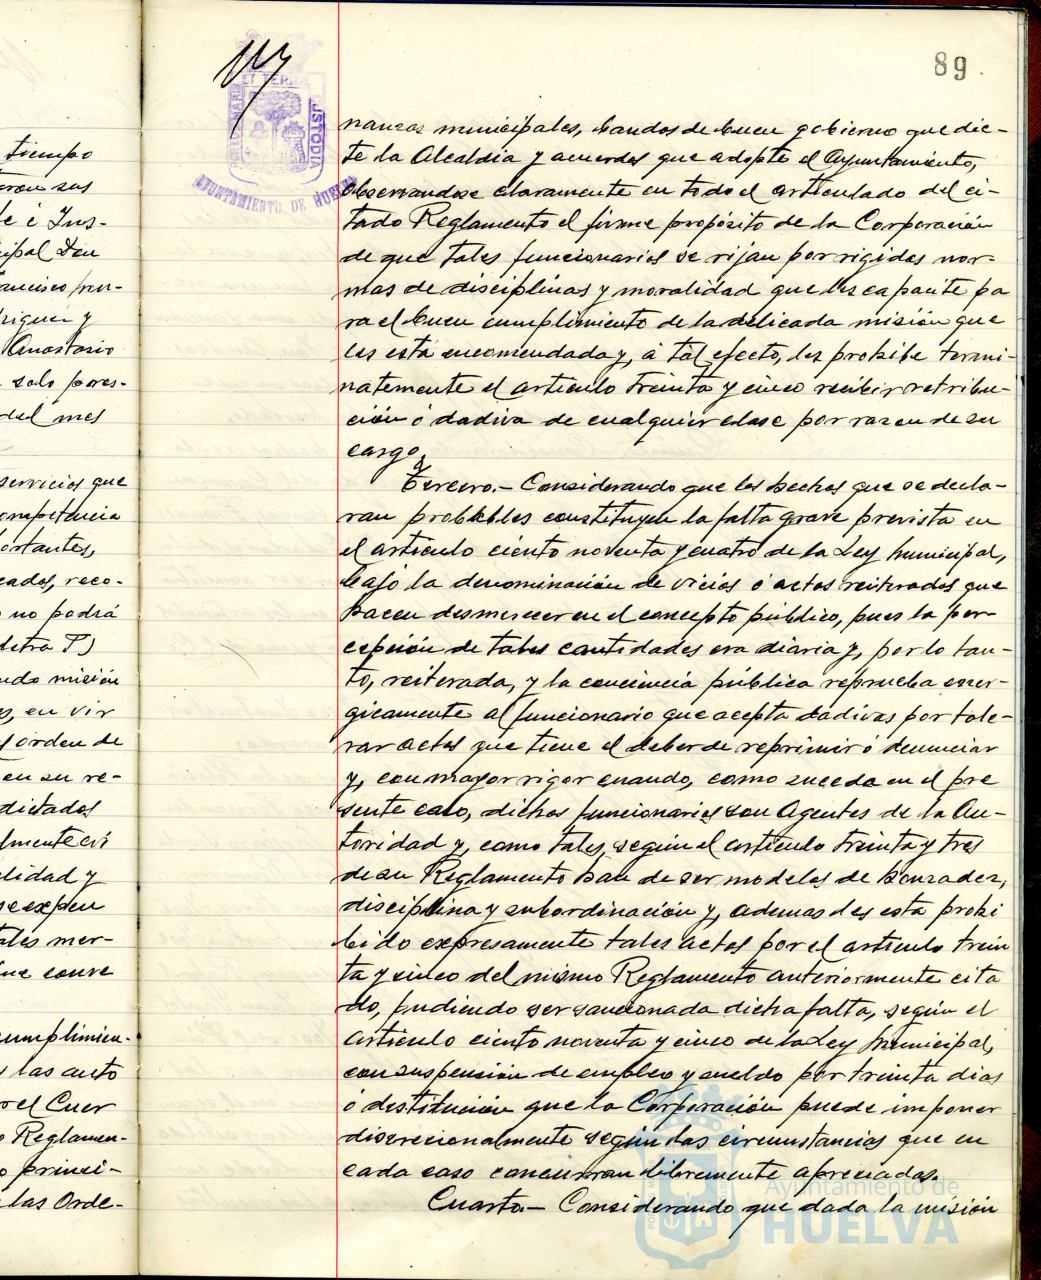 89
PORTUS MARIS
ET TERRÆ
CUSTODIA
AYUNTAMIENTO DE HUELVA
tiempo
sus
te é Ins-
cipal Don
rancisco
riguez y
Anastasio
solo pores-
del mes
servicios que
competencia
portantes,
cados, reco-
no podrá
letra T)
ndo misión
en vir
orden de
en su re-
dictados
lmente cri
alidad y
se expen
tales mer-
que conve
cumplimien-
las auto
r el Cuer
Reglamen-
princi-
las Orde-
nanzas municipales, bandos de buen gobierno que dic-
te la Alcaldía y acuerdos que adopte el Ayuntamiento,
observandose claramente en todo el articulado del ci-
tado Reglamento el firme propósito de la Corporación
de que tales funcionarios se rijan por rigidas nor-
mas de disciplinas y moralidad que les capacite pa
ra el buen cumplimiento de la delicada misión que
les está encomendada y, á tal efecto, les prohibe termi-
natemente el artículo treinta y cinco recibir retribu-
ción ó dadiva de cualquier clase por razon de su
cargo.
Tercero.- Considerando que los hechos que se decla-
ran probables constituyen la falta grave prevista en
el artículo ciento noventa y cuatro de la Ley Municipal,
bajo la denominación de vicios ó actos reiterados que
hacen desmerecer en el concepto público, pues la per-
cepción de tales cantidades era diaria y, por lo tan-
to, reiterada, y la conciencia pública reprueba ener-
gicamente al funcionario que acepta dadivas por tole-
rar actos que tiene el deber de reprimir ó denunciar
y, con mayor rigor cuando, como sucede en el pre
sente caso, dichos funcionarios son Agentes de la Au-
toridad y, como tales, según el artículo treinta y tres
de su Reglamento han de ser modelos de honradez,
disciplina y subordinación y, ademas les esta prohi
bido expresamente tales actos por el artículo trein
ta y cinco del mismo Reglamento anteriormente cita
do, pudiendo ser sancionada dicha falta, según el
artículo ciento noventa y cinco de la Ley Municipal,
con suspensión de empleo y sueldo por treinta dias
ó destitución que la Corporación puede imponer
discrecionalmente según las circunstancias que en
cada caso concurran libremente apreciadas.
Cuarto.- Considerando que dada la misión
Ayuntamiento de
HUELVA